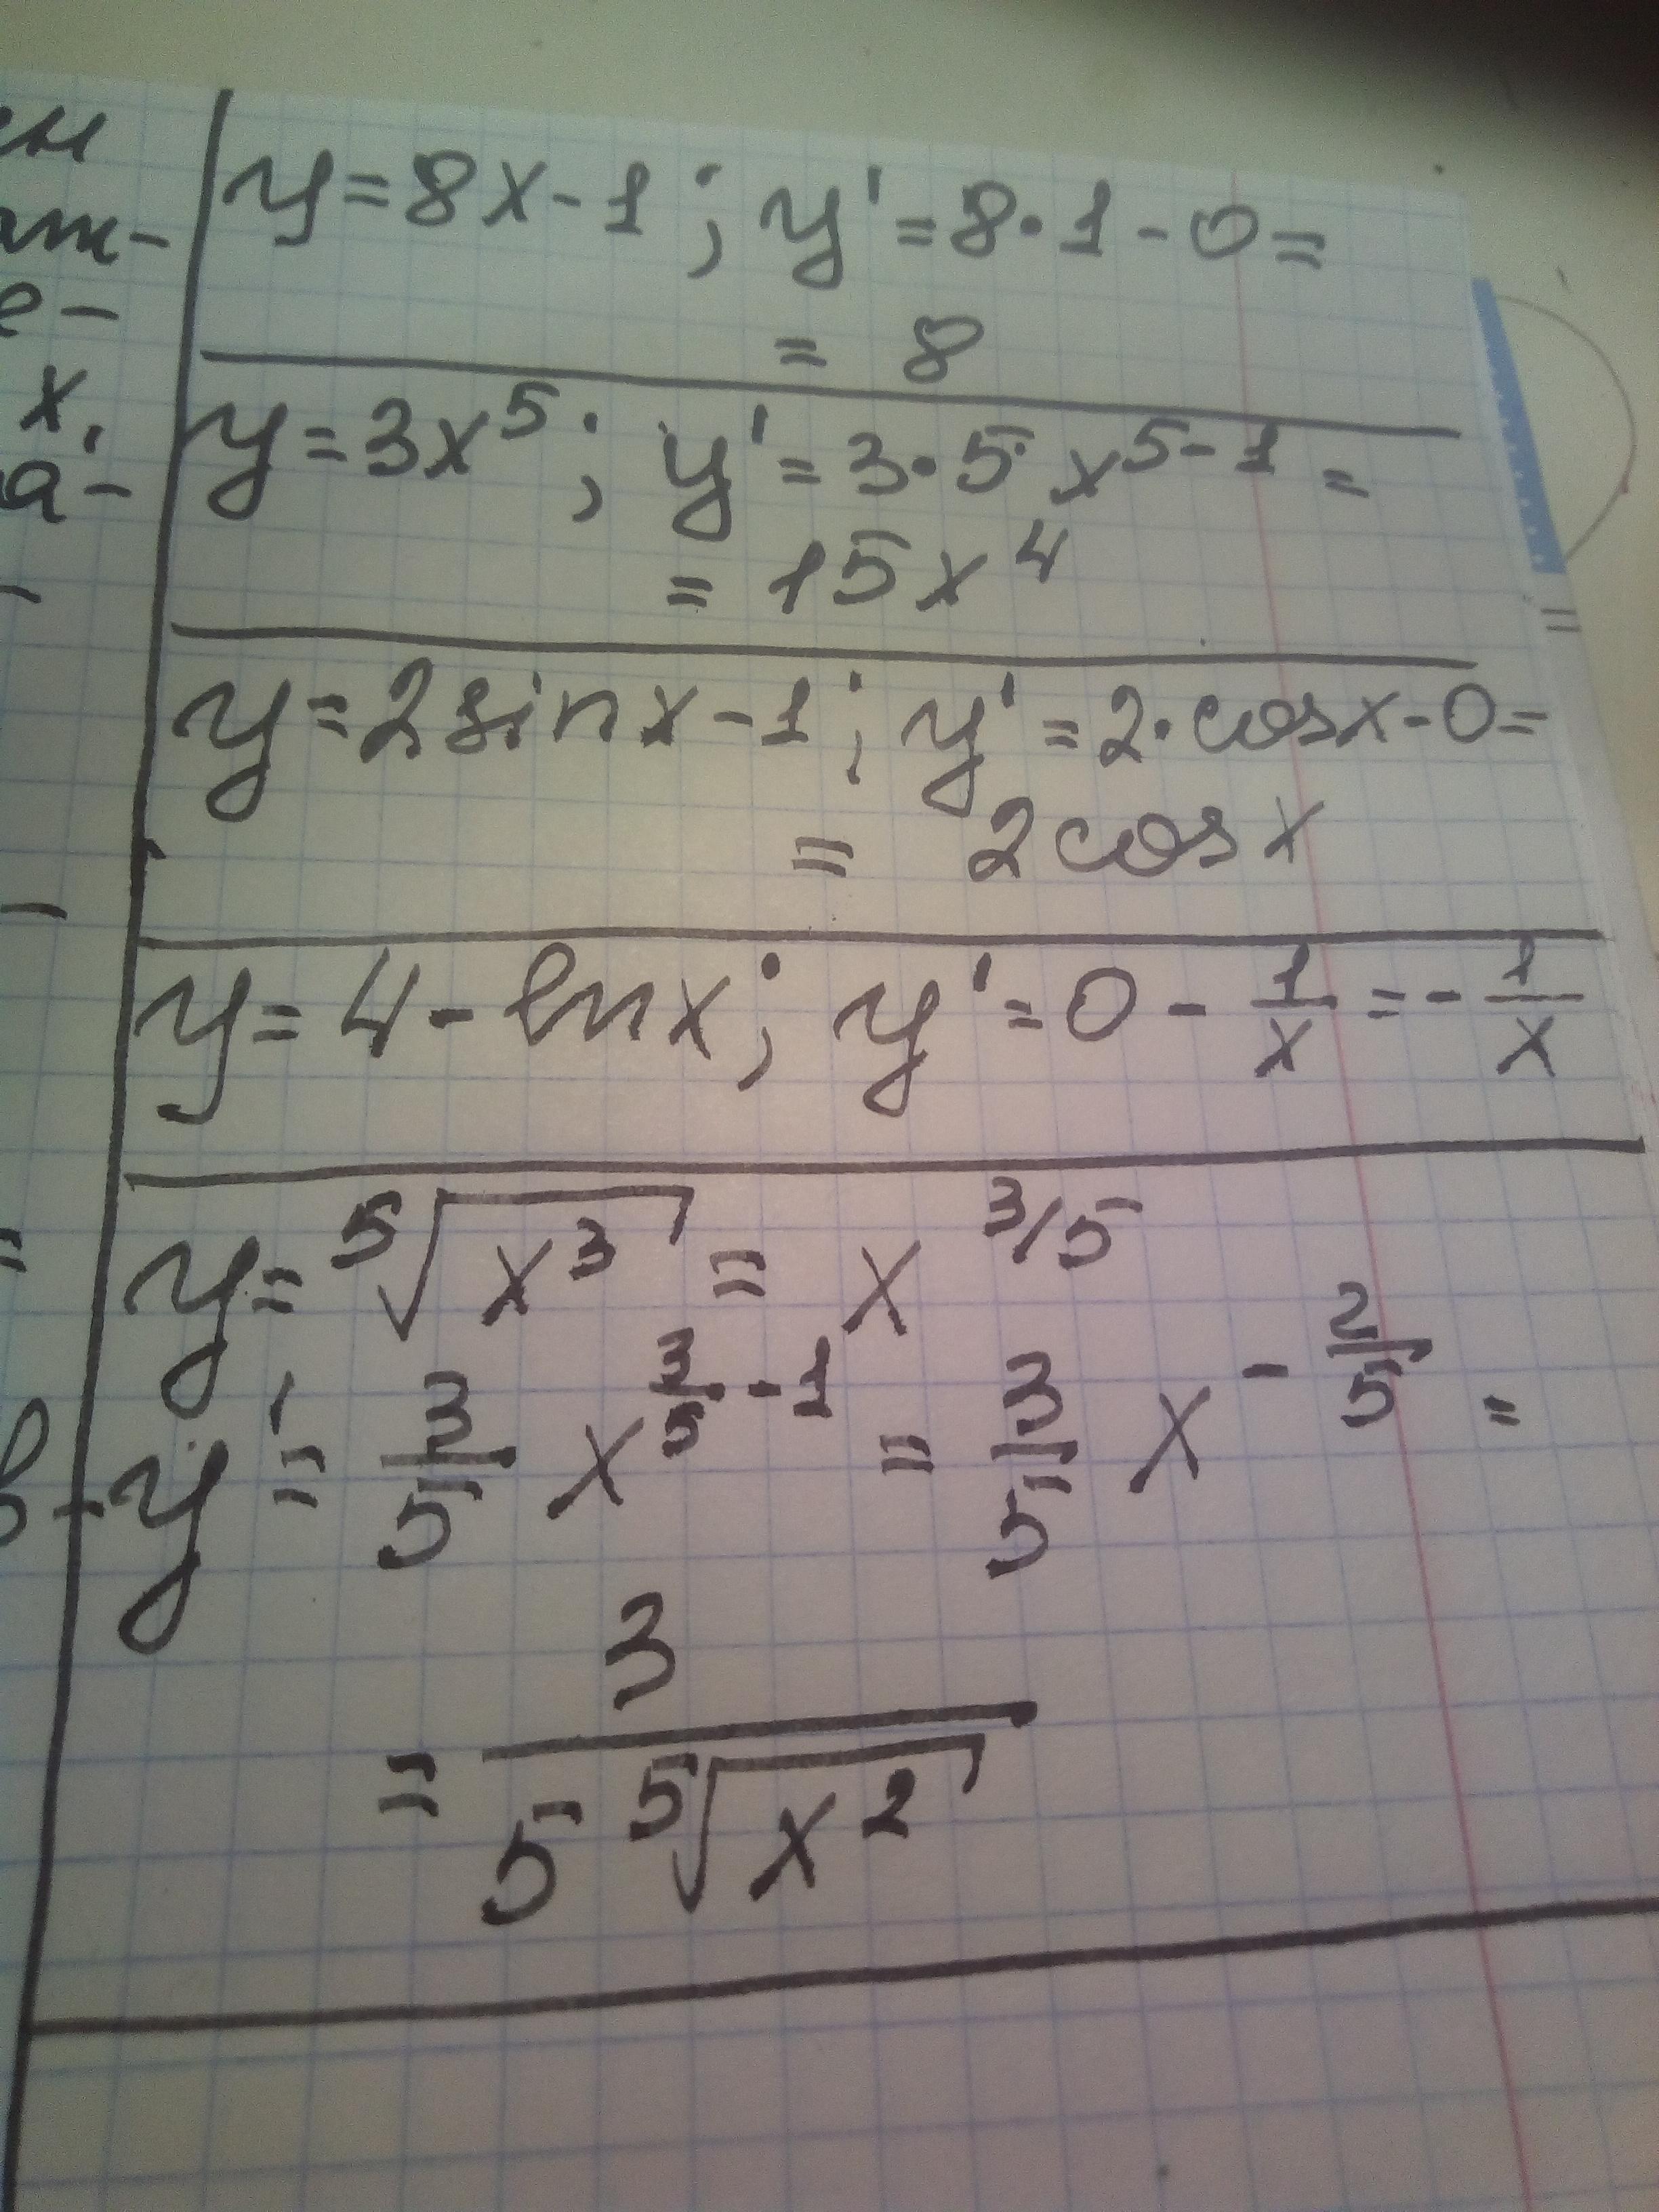 y = 8x - 1; y' = 8·1 - 0 =
= 8
x,
y = 3x⁵; y' = 3·5·x⁵⁻¹ =
= 15x⁴
y = 2 sin x - 1; y' = 2·cos x - 0 =
= 2 cos x
y = 4 - ln x; y' = 0 - 1/x = - 1/x
y = ⁵√x³ = x^3/5
y' = 3/5 x^(3/5 - 1) = 3/5 x^(-2/5) =
= 3/(5 ⁵√x²)